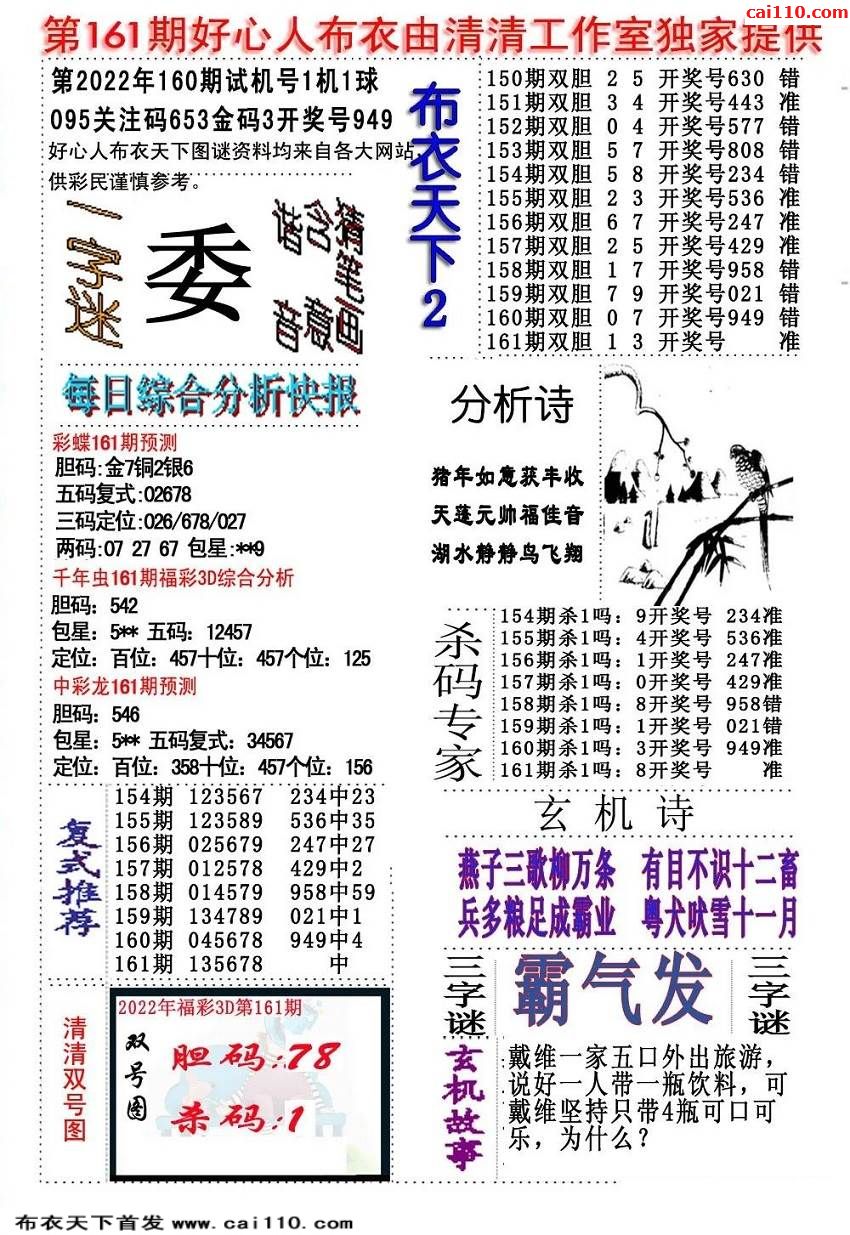 cai110.com
第161期好心人布衣由清清工作室独家提供
第2022年160期试机号1机1球
095关注码653金码3开奖号949
好心人布衣天下图谜资料均来自各大网站,
供彩民谨慎参考。
一字迷
委
猜笔画
含意
谐音
每日综合分析快报
彩蝶161期预测
胆码:金7铜2银6
五码复式:02678
三码定位:026/678/027
两码:07 27 67 包星:**9
千年虫161期福彩3D综合分析
胆码: 542
包星: 5** 五码: 12457
定位: 百位: 457十位: 457个位: 125
中彩龙161期预测
胆码: 546
包星: 5** 五码复式: 34567
定位: 百位: 358十位: 457个位: 156
复式推荐
154期 123567 234中23
155期 123589 536中35
156期 025679 247中27
157期 012578 429中2
158期 014579 958中59
159期 134789 021中1
160期 045678 949中4
161期 135678 中
清清双号图
2022年福彩3D第161期
双号图
胆码:78
杀码:1
布衣天下2
150期双胆 2 5 开奖号630 错
151期双胆 3 4 开奖号443 准
152期双胆 0 4 开奖号577 错
153期双胆 5 7 开奖号808 错
154期双胆 5 8 开奖号234 错
155期双胆 2 3 开奖号536 准
156期双胆 6 7 开奖号247 准
157期双胆 2 5 开奖号429 准
158期双胆 1 7 开奖号958 错
159期双胆 7 9 开奖号021 错
160期双胆 0 7 开奖号949 错
161期双胆 1 3 开奖号 准
分析诗
猪年如意获丰收
天蓬元帅福佳音
湖水静静鸟飞翔
杀码专家
154期杀1吗: 9开奖号 234准
155期杀1吗: 4开奖号 536准
156期杀1吗: 1开奖号 247准
157期杀1吗: 0开奖号 429准
158期杀1吗: 8开奖号 958错
159期杀1吗: 1开奖号 021错
160期杀1吗: 3开奖号 949准
161期杀1吗: 8开奖号 准
玄机诗
燕子三歌柳万条 有目不识十二畜
兵多粮足成霸业 粤犬吠雪十一月
三字谜
霸气发
三字谜
玄机故事
戴维一家五口外出旅游,
说好一人带一瓶饮料,可
戴维坚持只带4瓶可口可
乐,为什么?
布衣天下首发 www.cai110.com